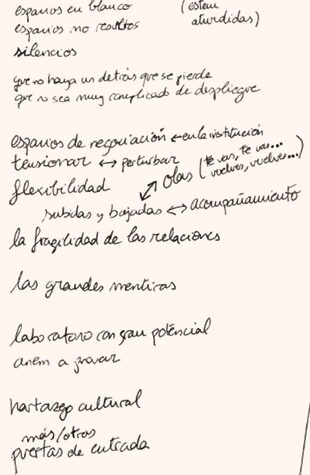 espacios en blanco (estem
espacios no resoltos aturdidas)
silencios
que no haya un detrás que se pierde
que no sea muy complicado de despliegue
espacios de negociación ← en la institución
tensionar ↔ perturbar
flexibilidad ↔ olas (te vas, te vas...
vuelves, vuelves...)
subidas y bajadas ↔ acompañamiento
la fragilidad de las relaciones
las grandes mentiras
laboratorio con gran potencial
anem a provar
hartazgo cultural
más/otros
puertas de entrada